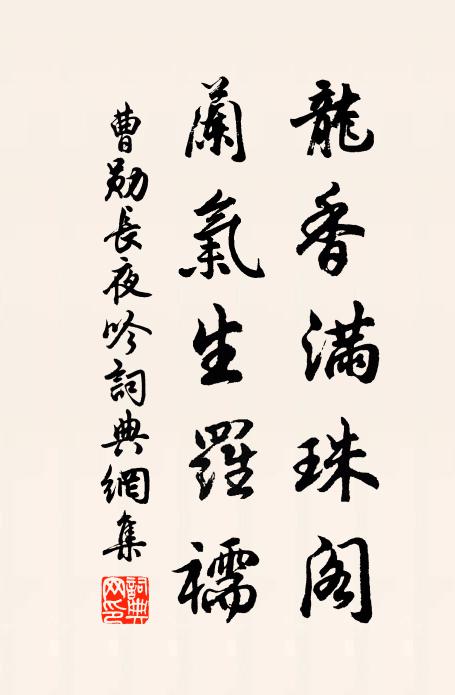 龍香滿珠阁
蘭氣生羅襦
曹勛長夜吟詞典網集
詞典网印